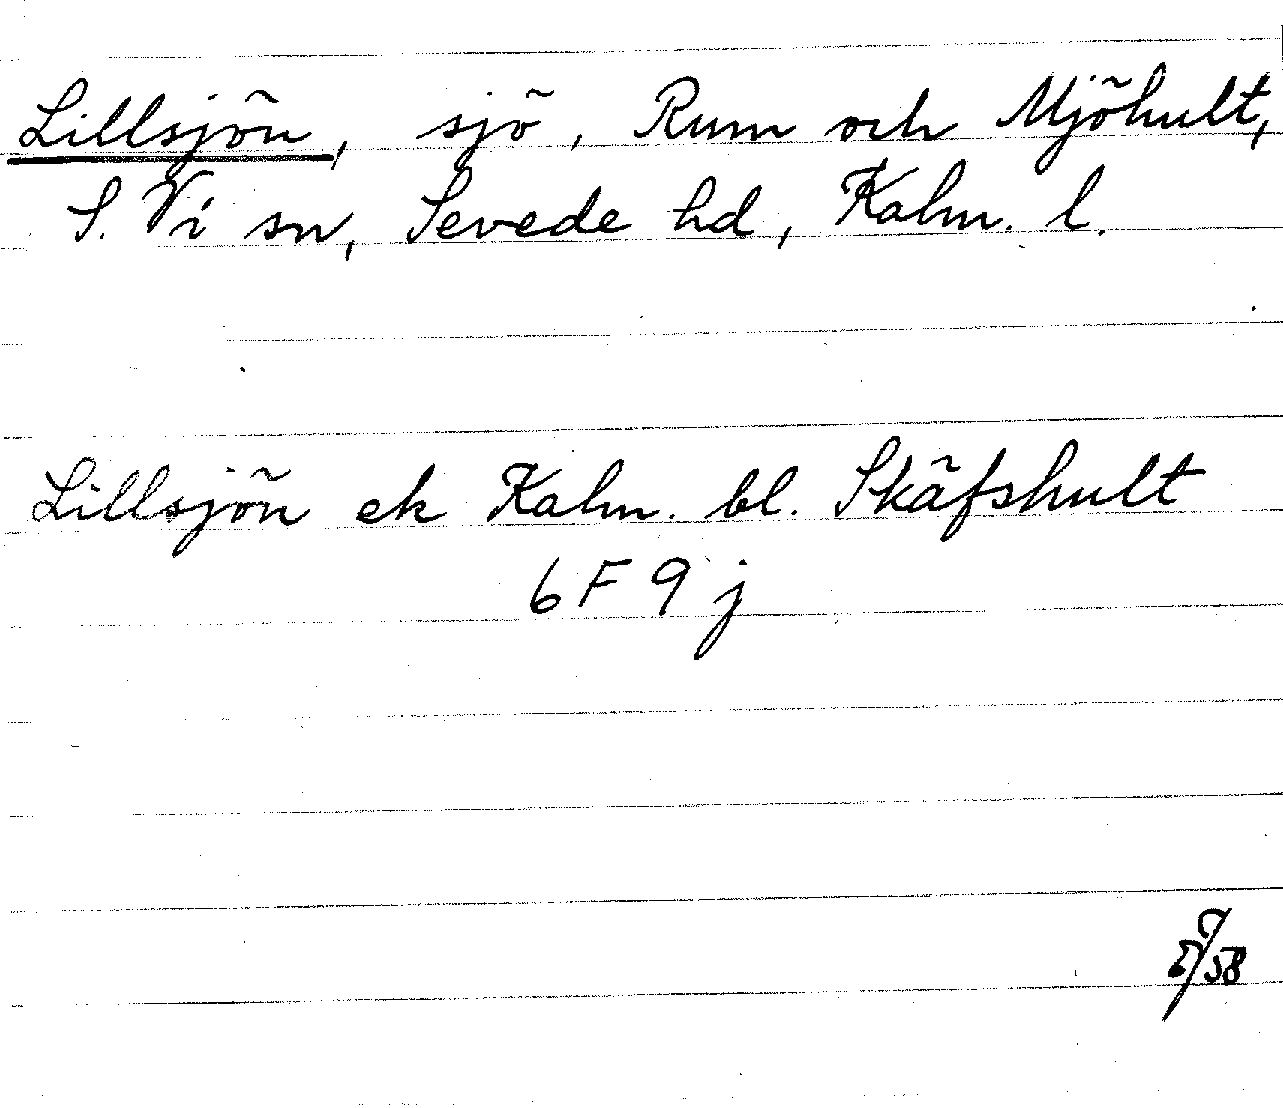 Lillsjön, sjö, Rum och Mjöhult,
S. Vi sn, Sevede hd, Kalm. l.
Lillsjön ek Kalm. bl. Skäfshult
6 F 9 j